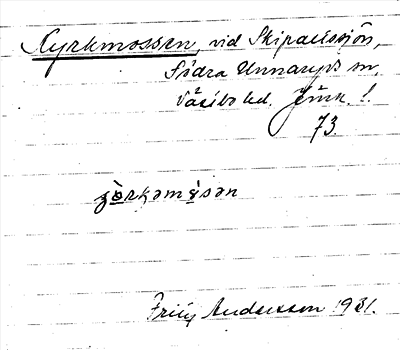 Kyrkmossen, vid Skipaelssjön,
Södra Unnaryds sn,
Västbo hd. Jönk. l.
73
Fritz Andersson 1931.